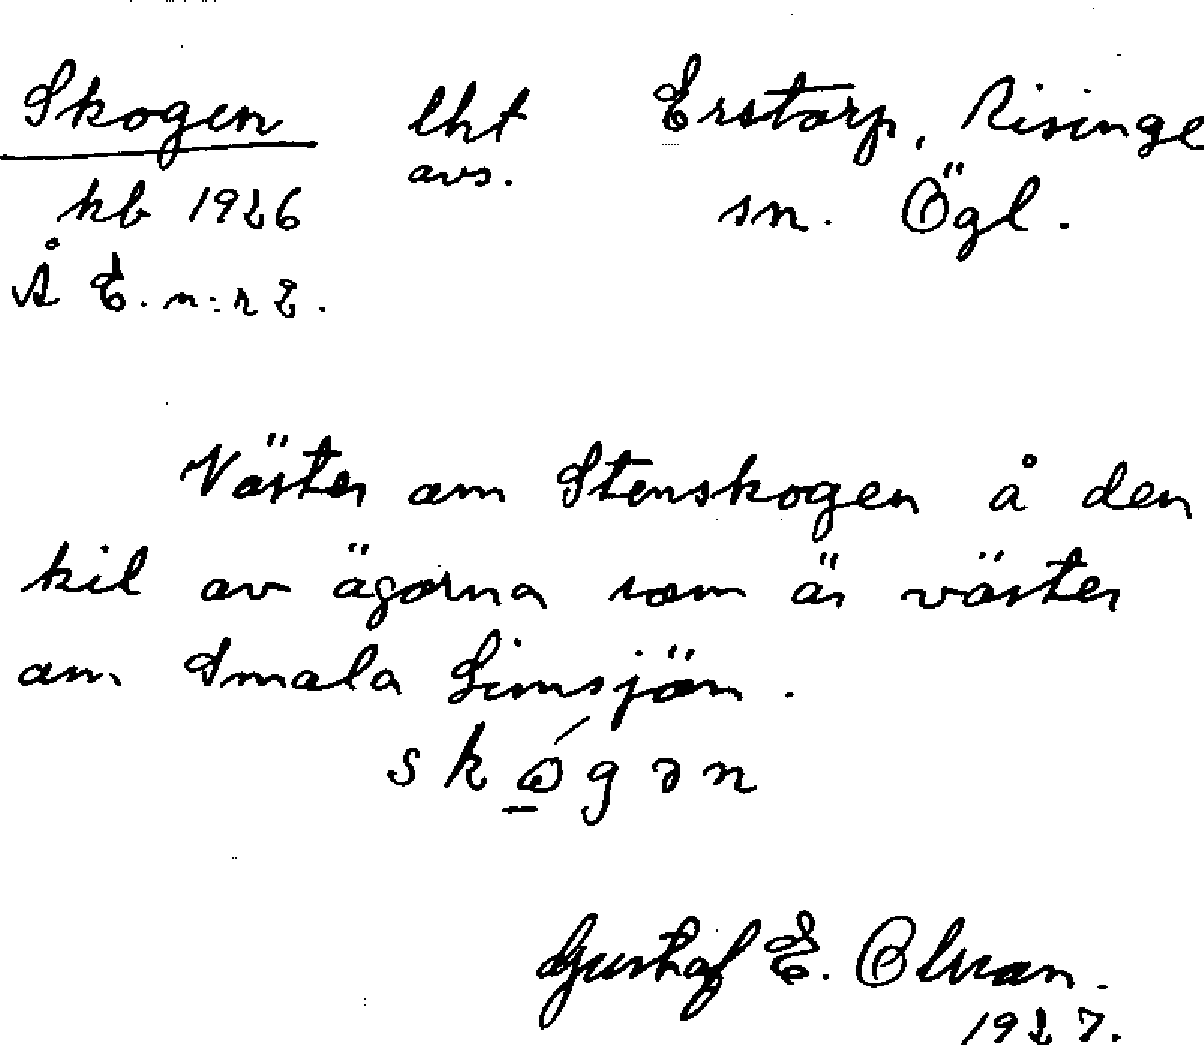 Skogen lht Erstorp, Risinge
avs.
kb 1926 sn. Ögl.
Å E. n:r 2.
Väster om Stenskogen å den
kil av ägorna som är väster
om Smala Limsjön.
skógən
Gustaf E. Olsson.
1927.